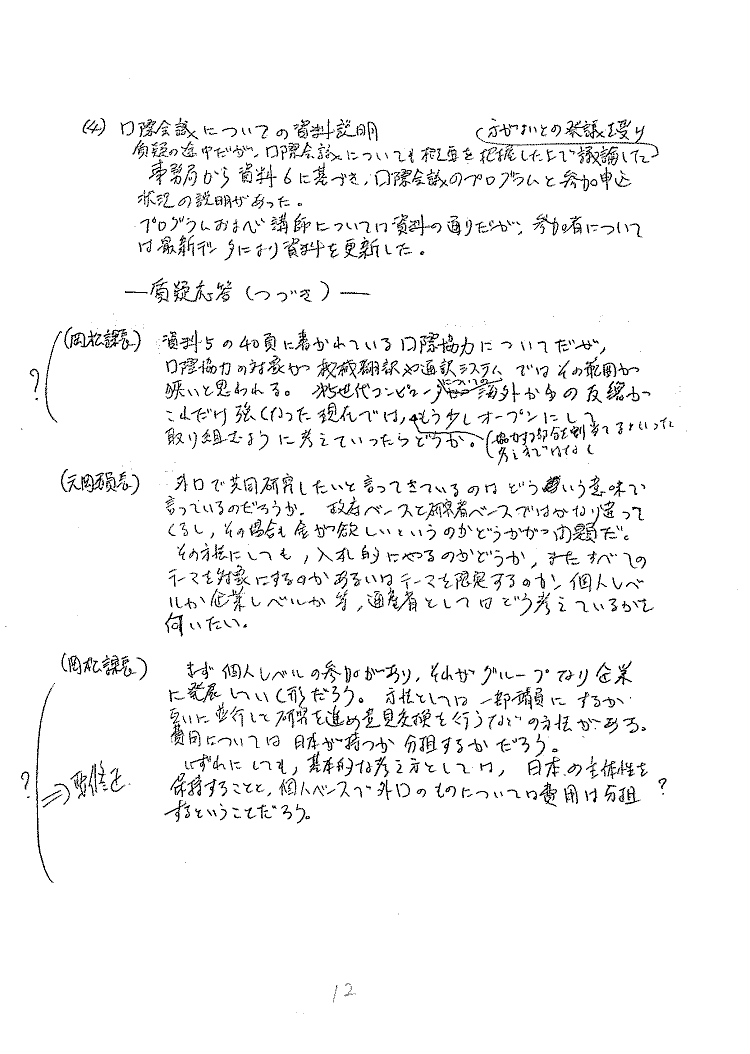 (4) 国際会議についての資料説明
質疑の途中だが、国際会議についても概要を把握した上で議論した
方がよいとの発議を受け
事務局から資料6に基づき、国際会議のプログラムと参加申込
状況の説明があった。
プログラムおよび講師については資料の通りだが、参加者について
は最新データにより資料を更新した。
—質疑応答(つづき)—
(岡松課長) 資料5の40頁に書かれている国際協力についてだが、
? 国際協力の対象が機械翻訳や通訳システムではその範囲が
狭いと思われる。 コンピュータについての海外からの反響が
これだけ強くなった現在では、もう少しオープンにして
取り組むように考えていったらどうか。
(元岡委員長) 外国で共同研究したいと言ってきているのはどういう意味で
言っているのだろうか。 政府ベースと研究者ベースではかなり違って
くるし、その場合も金が欲しいというのかどうかが問題だ。
その方法にしても、入札的にやるのかどうか、またすべての
テーマを対象にするのかあるいはテーマを限定するのか、個人レベ
ルか企業レベルか等、通産省としてはどう考えているかを
伺いたい。
(岡松課長) まず個人レベルの参加があり、それがグループなり企業
に発展していく形だろう。 方法としては一部請負にするか
互いに並行して研究を進め意見交換を行うなどの方法がある。
費用については日本が持つか分担するかだろう。
いずれにしても、基本的な考え方としては、日本の主体性を
? ⇒ 要修正 保持することと、個人ベースで外国のものについては費用は分担 ?
するということだろう。
12